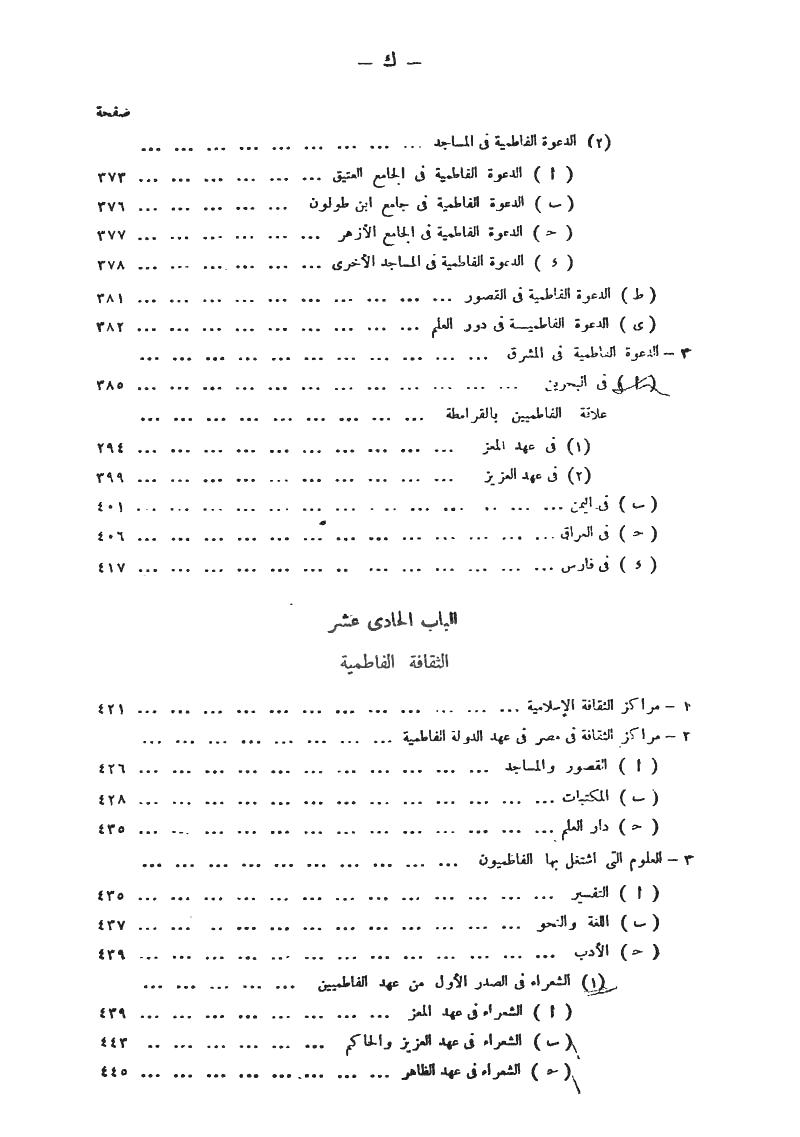 — ك —
صفحة
(٢) الدعوة الفاطمية فى المساجد ... ... ... ... ... ... ... ... ...
( ا ) الدعوة الفاطمية فى الجامع العتيق ... ... ... ... ... ... ٣٧٣
( ب ) الدعوة الفاطمية فى جامع ابن طولون ... ... ... ... ... ٣٧٦
( ح ) الدعوة الفاطمية فى الجامع الأزهر ... ... ... ... ... ... ٣٧٧
( ء ) الدعوة الفاطمية فى المساجد الأخرى ... ... ... ... ... ... ٣٧٨
( ط ) الدعوة الفاطمية فى القصور ... ... ... ... ... ... ... ... ... ... ٣٨١
( ى ) الدعوة الفاطميـــة فى دور العلم ... ... ... ... ... ... ... ... ... ٣٨٢
٣ — الدعوة الفاطمية فى المشرق ... ... ... ... ... ... ... ... ... ... ...
( ا ) فى البحرين ... ... ... ... ... ... ... ... ... ... ... ... ٣٨٥
علاقة الفاطميين بالقرامطة ... ... ... ... ... ... ... ... ...
(١) فى عهد المعز ... ... ... ... ... ... ... ... ... ... ٢٩٤
(٢) فى عهد العزيز ... ... ... ... ... ... ... ... ... ... ٣٩٩
( ب ) فى اليمن ... ... ... ... ... ... ... ... ... ... ... ... ... ٤٠١
( ح ) فى العراق ... ... ... ... ... ... ... ... ... ... ... ... ... ٤٠٦
( ء ) فى فارس ... ... ... ... ... ... ... ... ... ... ... ... ... ٤١٧
الباب الحادى عشر
الثقافة الفاطمية
١ — مراكز الثقافة الإسلامية ... ... ... ... ... ... ... ... ... ... ... ... ٤٢١
٢ — مراكز الثقافة فى مصر فى عهد الدولة الفاطمية ... ... ... ... ... ... ... ...
( ا ) القصور والمساجد ... ... ... ... ... ... ... ... ... ... ... ٤٢٦
( ب ) المكتبات ... ... ... ... ... ... ... ... ... ... ... ... ... ٤٢٨
( ح ) دار العلم ... ... ... ... ... ... ... ... ... ... ... ... ... ٤٣٥
٣ — العلوم التى اشتغل بها الفاطميون ... ... ... ... ... ... ... ... ... ...
( ا ) التفسير ... ... ... ... ... ... ... ... ... ... ... ... ... ٤٣٥
( ب ) اللغة والنحو ... ... ... ... ... ... ... ... ... ... ... ... ٤٣٧
( ح ) الأدب ... ... ... ... ... ... ... ... ... ... ... ... ... ٤٣٩
(١) الشعراء فى الصدر الأول من عهد الفاطميين ... ... ... ... ...
( ا ) الشعراء فى عهد المعز ... ... ... ... ... ... ... ... ٤٣٩
( ب ) الشعراء فى عهد العزيز والحاكم ... ... ... ... ... .. ٤٤٣
( ح ) الشعراء فى عهد الظاهر ... ... ... ... ... ... ... ... ٤٤٥